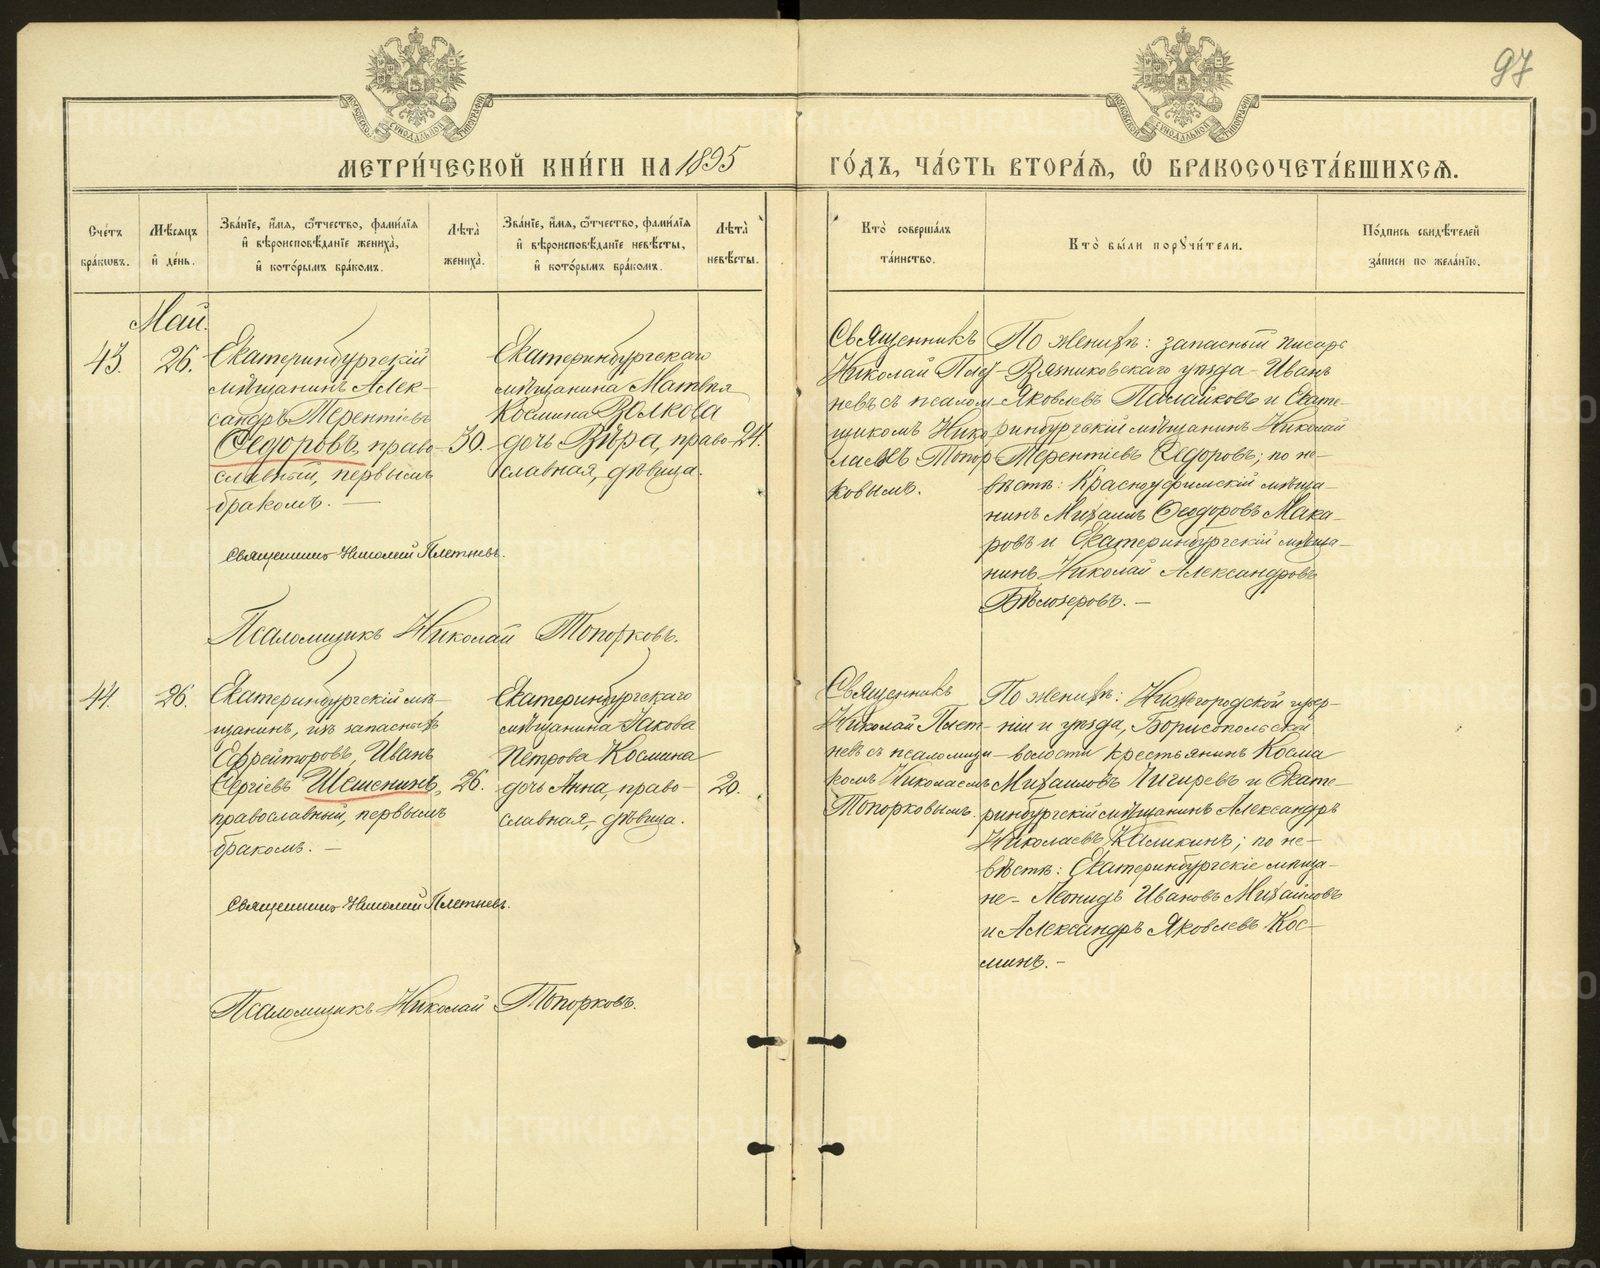 97
МЕТРИ́ЧЕСКОЙ КНИ́ГИ НА 1895
ГО́ДЪ, ЧА́СТЬ ВТОРА́Я, Ѽ БРАКОСОЧЕТА́ВШИХСЯ.
Сче́тъ
бра́ковъ.
Мѣ́сяцъ
и҆ де́нь.
Зва́нїе, и҆́мя, ѻ҆́тчество, фами́лїя
и҆ вѣроисповѣ́данїе жениха̀,
и҆ кото́рымъ бра́комъ.
Лѣта̀
жениха̀.
Зва́нїе, и҆́мя, ѻ҆́тчество, фами́лїя
и҆ вѣроисповѣ́данїе невѣ́сты,
и҆ кото́рымъ бра́комъ.
Лѣта̀
невѣ́сты.
Кто̀ соверша́лъ
та́инство.
Кто̀ бы́ли порꙋчи́тели.
По́дпись свидѣ́телей
за́писи по жела́нїю.
Май.
43.
26.
Екатеринбургскій
мѣщанинъ Алек-
сандръ Терентіевъ
Ѳедоровъ, право-
славный, первымъ
бракомъ. —
30.
Екатеринбургскаго
мѣщанина Матвѣя
Космина Волкова
дочь Вѣра, право-
славная, дѣвица.
24.
Священникъ
Николай Плет-
невъ съ псалом-
щикомъ Нико-
лаемъ Топор-
ковымъ.
По женихѣ: запасный писарь
Вязниковскаго уѣзда Иванъ
Яковлевъ Палайковъ и Екате-
ринбургскій мѣщанинъ Николай
Терентіевъ Ѳедоровъ; по не-
вѣстѣ: Красноуфимскій мѣща-
нинъ Михаилъ Ѳеодоровъ Мака-
ровъ и Екатеринбургскій мѣща-
нинъ Николай Александровъ
Бѣлозеровъ. —
Священникъ Николай Плетневъ.
Псаломщикъ Николай Топорковъ.
44.
26.
Екатеринбургскій мѣ-
щанинъ, изъ запасныхъ
Ефрейторовъ, Иванъ
Сергіевъ Шешенинъ,
православный, первымъ
бракомъ. —
26.
Екатеринбургскаго
мѣщанина Іакова
Петрова Космина
дочь Анна, право-
славная, дѣвица.
20.
Священникъ
Николай Плет-
невъ съ псаломщи-
комъ Николаемъ
Топорковымъ.
По женихѣ: Нижегородской губер-
ніи и уѣзда, Борисопольской
волости крестьянинъ Косма
Михаиловъ Чигиревъ и Екате-
ринбургскій мѣщанинъ Александръ
Николаевъ Каликинъ; по не-
вѣстѣ: Екатеринбургскіе мѣща-
не- Леонидъ Ивановъ Михайловъ
и Александръ Яковлевъ Кос-
минъ. —
Священникъ Николай Плетневъ.
Псаломщикъ Николай Топорковъ.